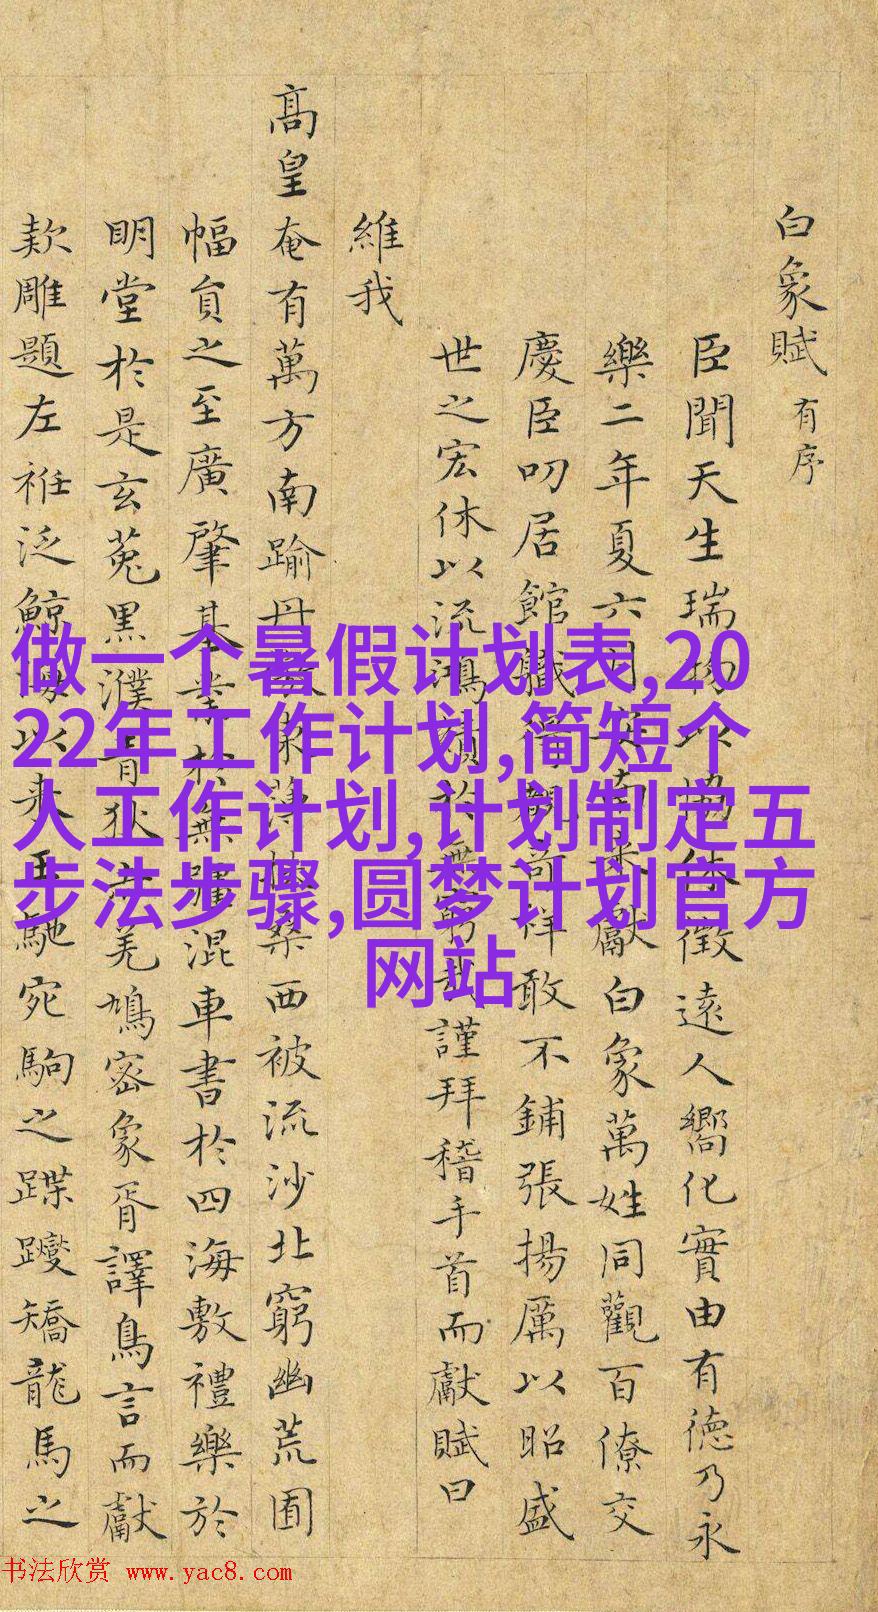 白象賦有序
臣聞天生瑞物以協休徵遠人嚮化實由有德乃永
樂二年夏六月南來獻白象萬姓同觀百僚交
慶臣叨居館職獲覩奇祥敢不鋪張揚厲以昭盛
世之宏休以流鴻績於無窮哉謹拜稽手首而獻賦曰
維我
髙皇奄有萬方南踰丹東薄榑桑西被流沙北窮幽荒囿
幅負之至廣肇基業於無疆混車書於四海敷禮樂於
明堂於是玄菟黒濮青狄羌鳩密象胥譯鳥言而獻
欵雕題左袵泛鯨以来王馳宛駒之蹀躞矯龍馬之
做一个暑假计划表,20
22年工作计划,简短个
人工作计划,计划制定五
步法步骤,圆梦计划官方
网站
书法欣赏 www.yac8.com